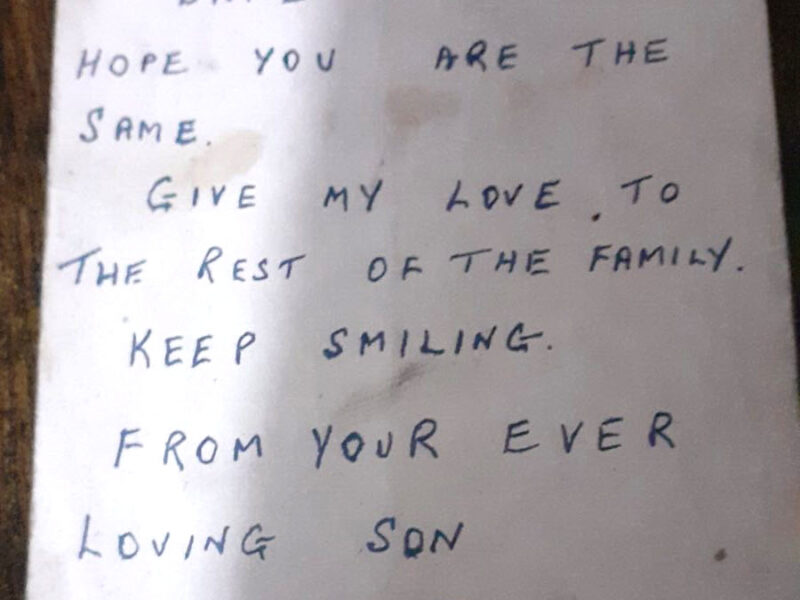 HOPE YOU ARE THE
SAME.
GIVE MY LOVE . TO
THE REST OF THE FAMILY.
KEEP SMILING.
FROM YOUR EVER
LOVING SON